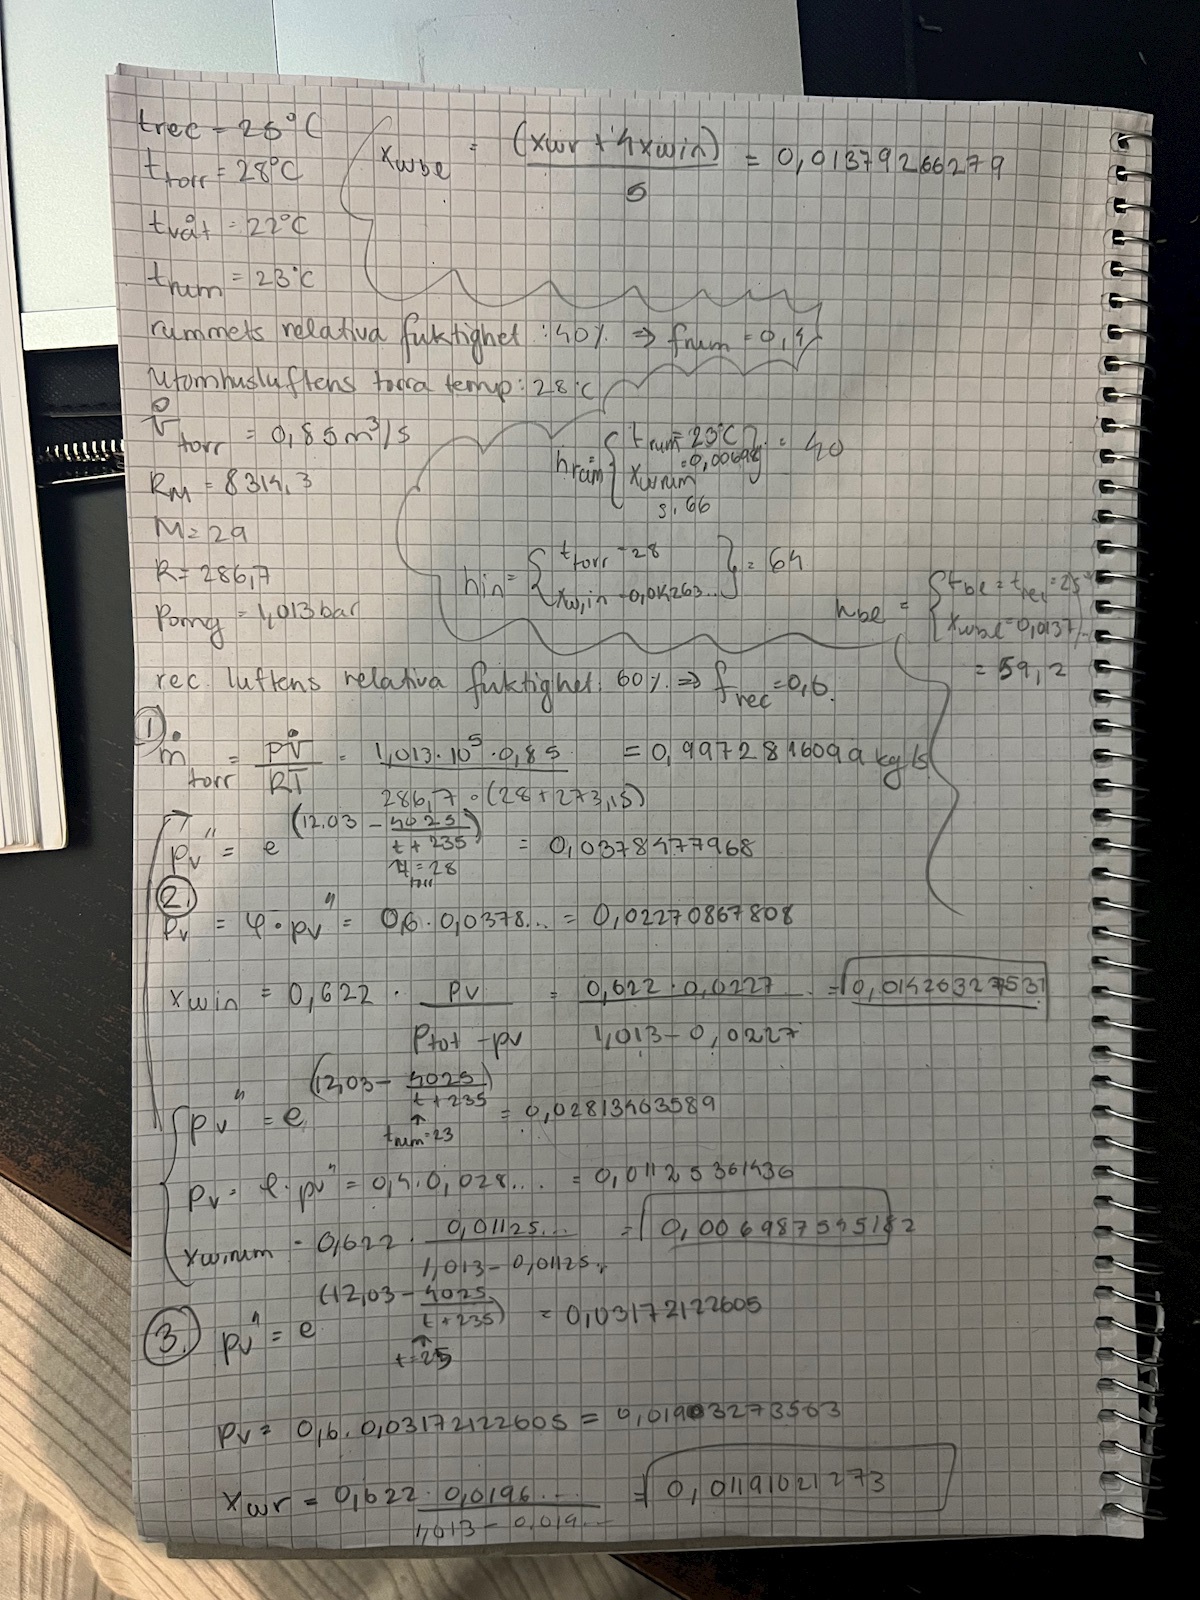 trec = 25°C
t torr = 28°C
t våt = 22°C
t rum = 23°C
xwbe = (xwr + 4xwin) / 5 = 0,01379266279
rummets relativa fuktighet : 40% ⇒ frum = 0,4
Utomhusluftens torra temp: 28°C
V̇ torr = 0,85 m³/s
RM = 8314,3
M = 29
R = 286,7
Pomg = 1,013 bar
hrum { trum = 23°C xwrum = 0,00698 } = 40
s. 66
hin = { ttorr = 28 xw,in = 0,014263... } = 64
hbe = { tbe = trec = 25° xwbe = 0,0137
= 59,2
rec. luftens relativa fuktighet: 60% ⇒ frec = 0,6.
1. ṁ torr = pV̇ / RT = 1,013·10⁵·0,85 / 286,7·(28+273,15) = 0,9972816099 kg/s
pv" = e (12.03 - 4025 / t + 235) = 0,03784477968
t torr = 28
2.
pv = φ·pv" = 0,6·0,0378... = 0,02270867808
xwin = 0,622 · pv / Ptot - pv = 0,622·0,0227 / 1,013 - 0,0227 = 0,01426327531
pv" = e (12,03 - 4025 / t + 235) = 0,02813403589
↑ trum = 23
pv = φ·pv" = 0,4·0,028... = 0,01125361436
xwrum = 0,622 · 0,01125... / 1,013 - 0,01125. = 0,006987545182
3. pv" = e (12,03 - 4025 / t + 235) = 0,03172122605
↑ t = 25
pv = 0,6·0,03172122605 = 0,01903273563
xwr = 0,622 · 0,0196... / 1,013 - 0,019... = 0,01191021273